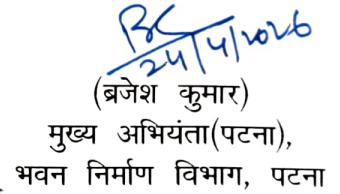 BC
24/4/2026
(ब्रजेश कुमार)
मुख्य अभियंता(पटना),
भवन निर्माण विभाग, पटना